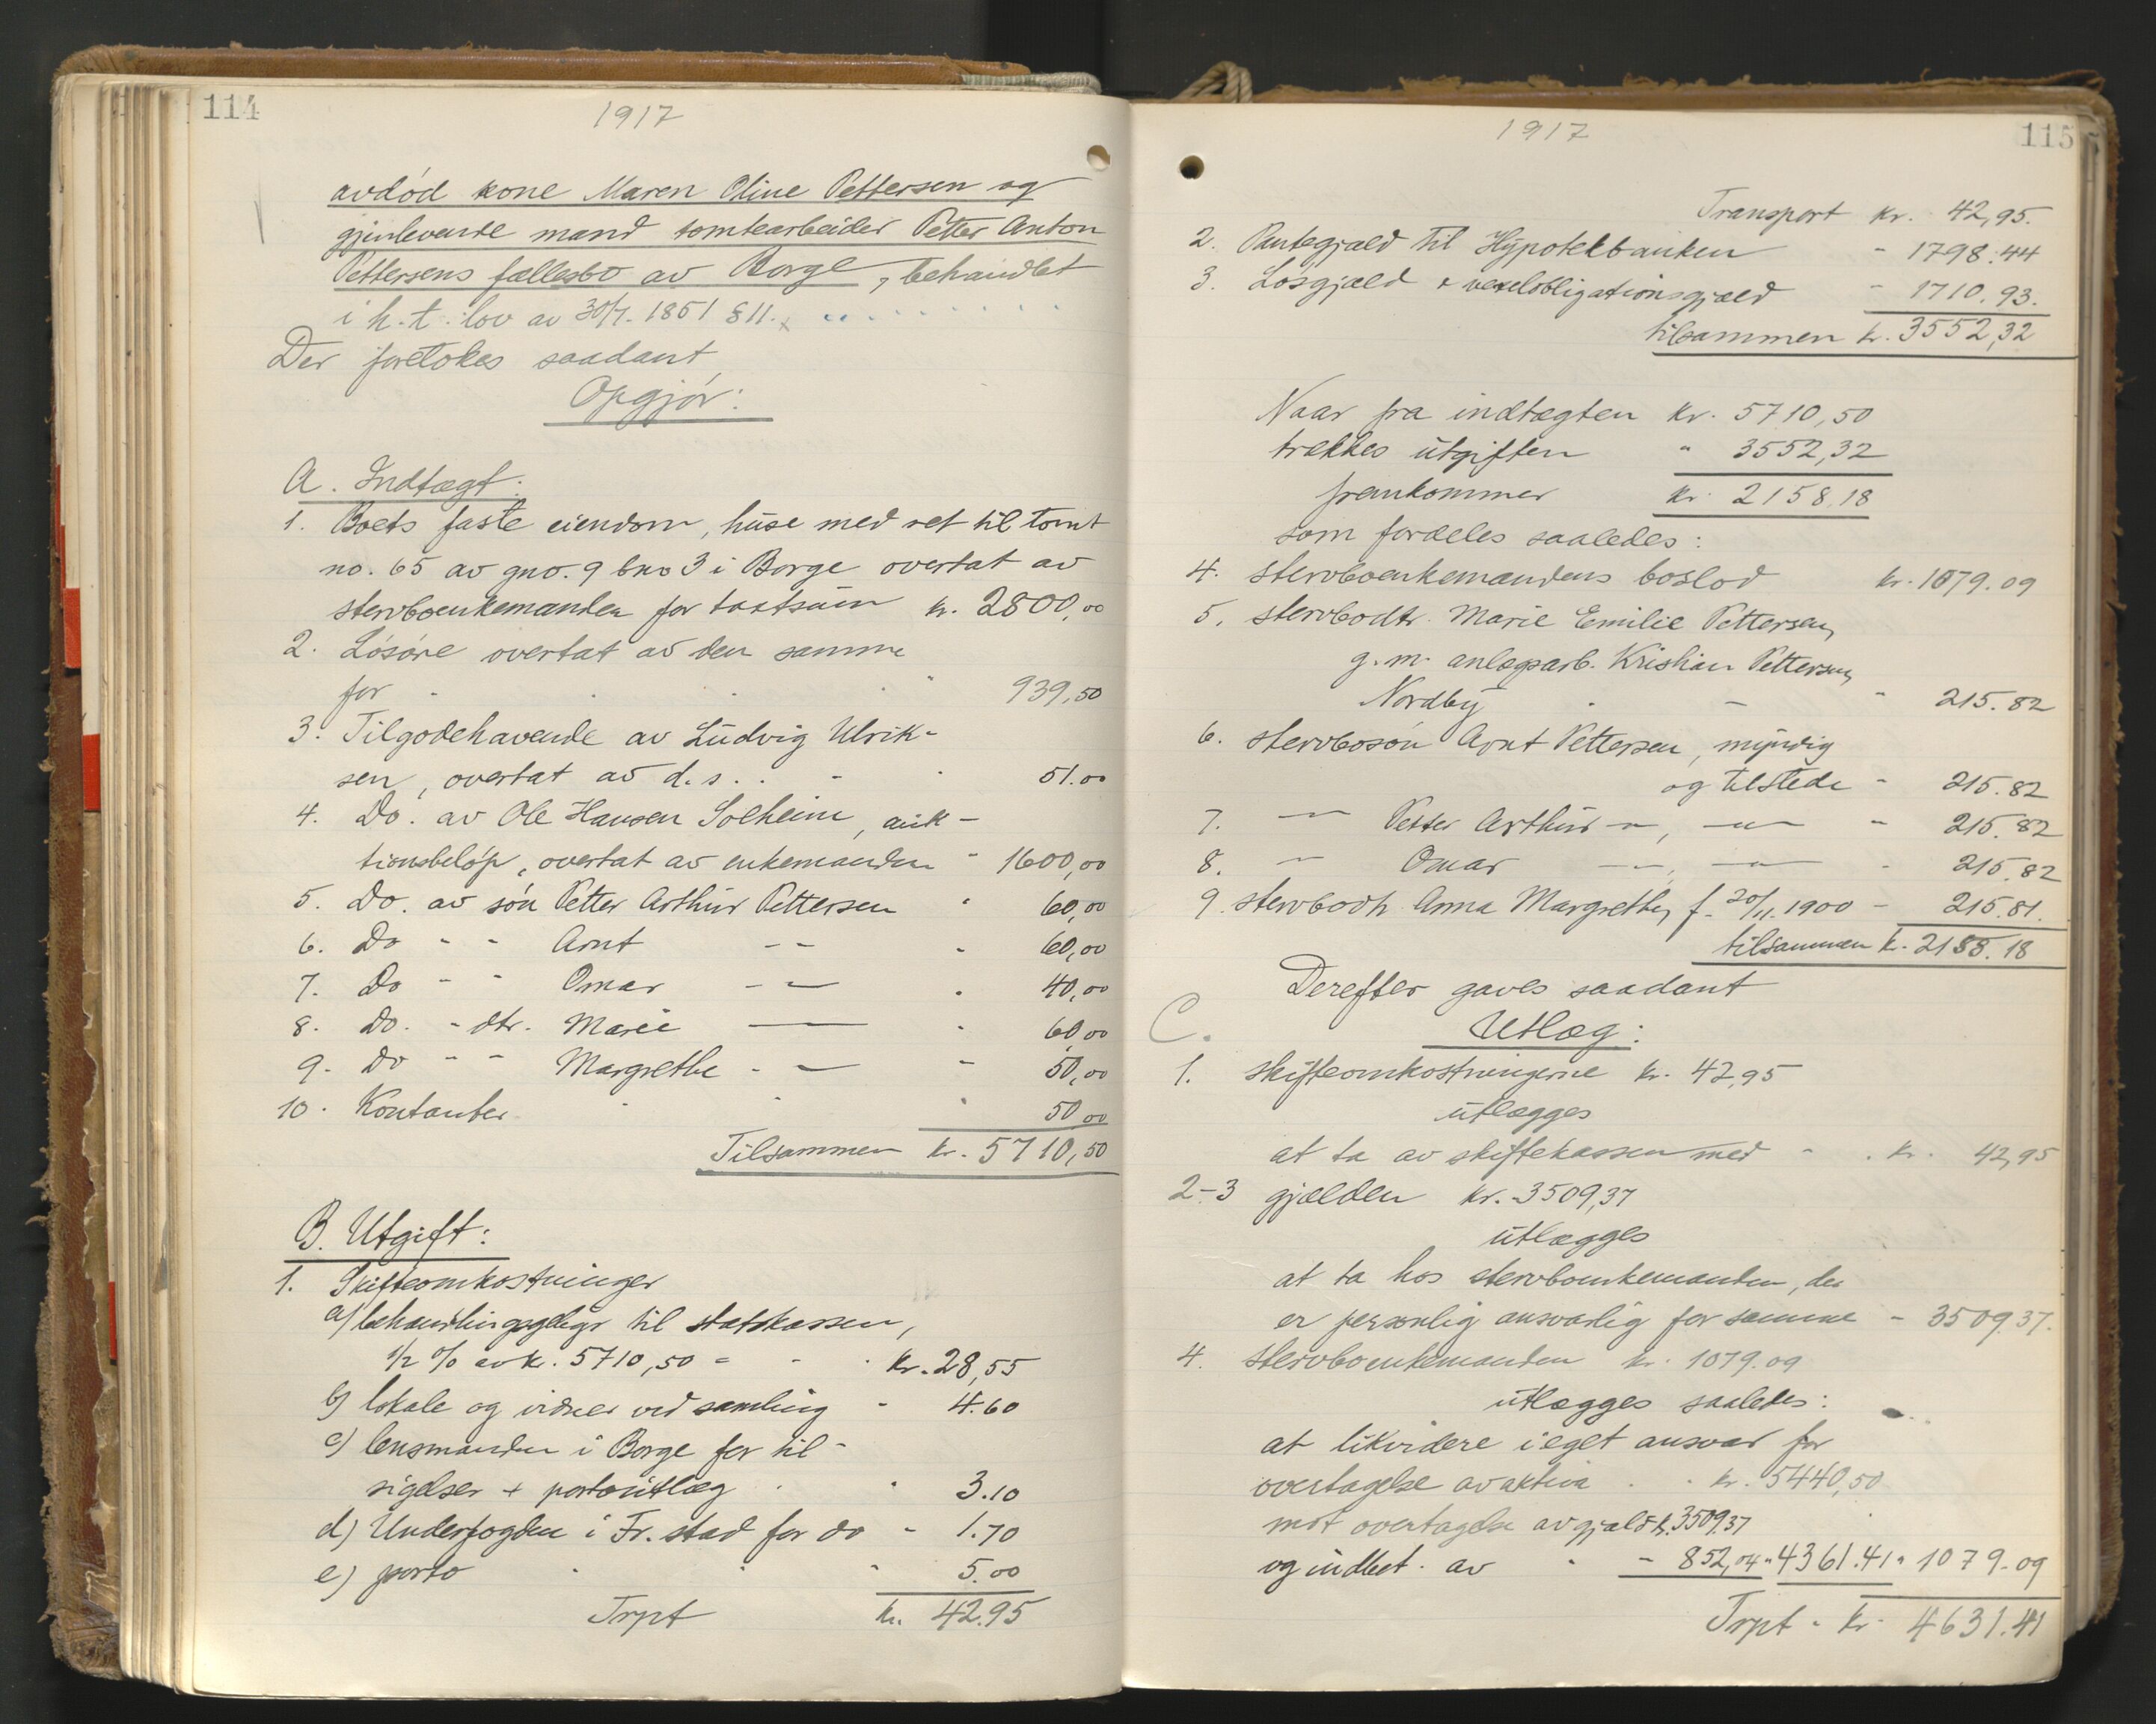 114
1917
avdød kone Maren Oline Pettersen og
gjenlevende mand tomtearbeider Petter Anton
Pettersens fællesbo av Borge, behandlet
i h. t. lov av 30/7. 1851 § 11.
Der foretokes saadant
Opgjør:
A. Indtægt:
1. Boets faste eiendom, huse med ret til tomt
no. 65 av gno. 9 bno 3 i Borge overtat av
stervboenkemanden for taxtsum kr. 2800,00
2. Løsøre overtat av den samme
for . . . . " 939,50
3. Tilgodehavende av Ludvig Ulrik-
sen, overtat av d. s. . - . 51.00
4. Do. av Ole Hansen Solheim, auk-
tionsbeløp, overtat av enkemanden " 1600,00
5. Do. av søn Petter Arthur Pettersen " 60,00
6. Do - - Arnt - - " 60,00
7. Do - - Omar - — " 40,00
8. Do. - dtr. Marie — " 60,00
9. Do - - Margrethe - — " 50,00
10. Kontanter . . " 50 00
Tilsammen kr. 5710,50
B. Utgift:
1. Skifteomkostninger
a) behandlingsgebyr til statskassen,
1/2 % av kr. 5710,50 = - . kr. 28,55
b) lokale og vidner ved samling - 4.60
c) lensmanden i Borge for til-
sigelser + portoutlæg . " 3.10
d) Underfogden i Fr.stad for do - 1.70
e) porto . . " 5.00
Trpt kr. 42.95
1917
115
Transport kr. 42,95.
2. Pantegjæld til Hypotekbanken - 1798.44
3. Løsgjæld + vexelobligationsgjæld - 1710.93.
tilsammen kr. 3552,32
Naar fra indtægten kr. 5710,50
trækkes utgiften " 3552,32
fremkommer kr. 2158.18
som fordeles saaledes:
4. stervboenkemandens boslod kr. 1079.09
5. stervbodtr. Marie Emilie Pettersen,
g. m. anlægsarb. Kristian Pettersen,
Nordby . - " 215.82
6. stervbosøn Arnt Pettersen, myndig
og tilstede - 215.82
7. —"— Petter Arthur —"—, —"— " 215.82
8. —"— Omar —"—, —"— - 215.82
9. stervbodtr. Anna Margrethe, f. 20/11. 1900 - 215.81.
tilsammen kr. 2158.18
Derefter gaves saadant
C. Utlæg:
1. skifteomkostningerne kr. 42,95
utlægges
at ta av skiftekassen med - . kr. 42,95
2-3 gjælden kr. 3509,37
utlægges
at ta hos stervboenkemanden, der
er personlig ansvarlig for samme - 3509.37.
4. stervboenkemanden kr. 1079.09
utlægges saaledes:
at likvidere i eget ansvar for
overtagelse av aktiva . . kr. 5440,50
mot overtagelse av gjæld kr. 3509.37
og indbet. av - - 852,04 " 4361.41 " 1079-09
Trpt - kr. 4631.41